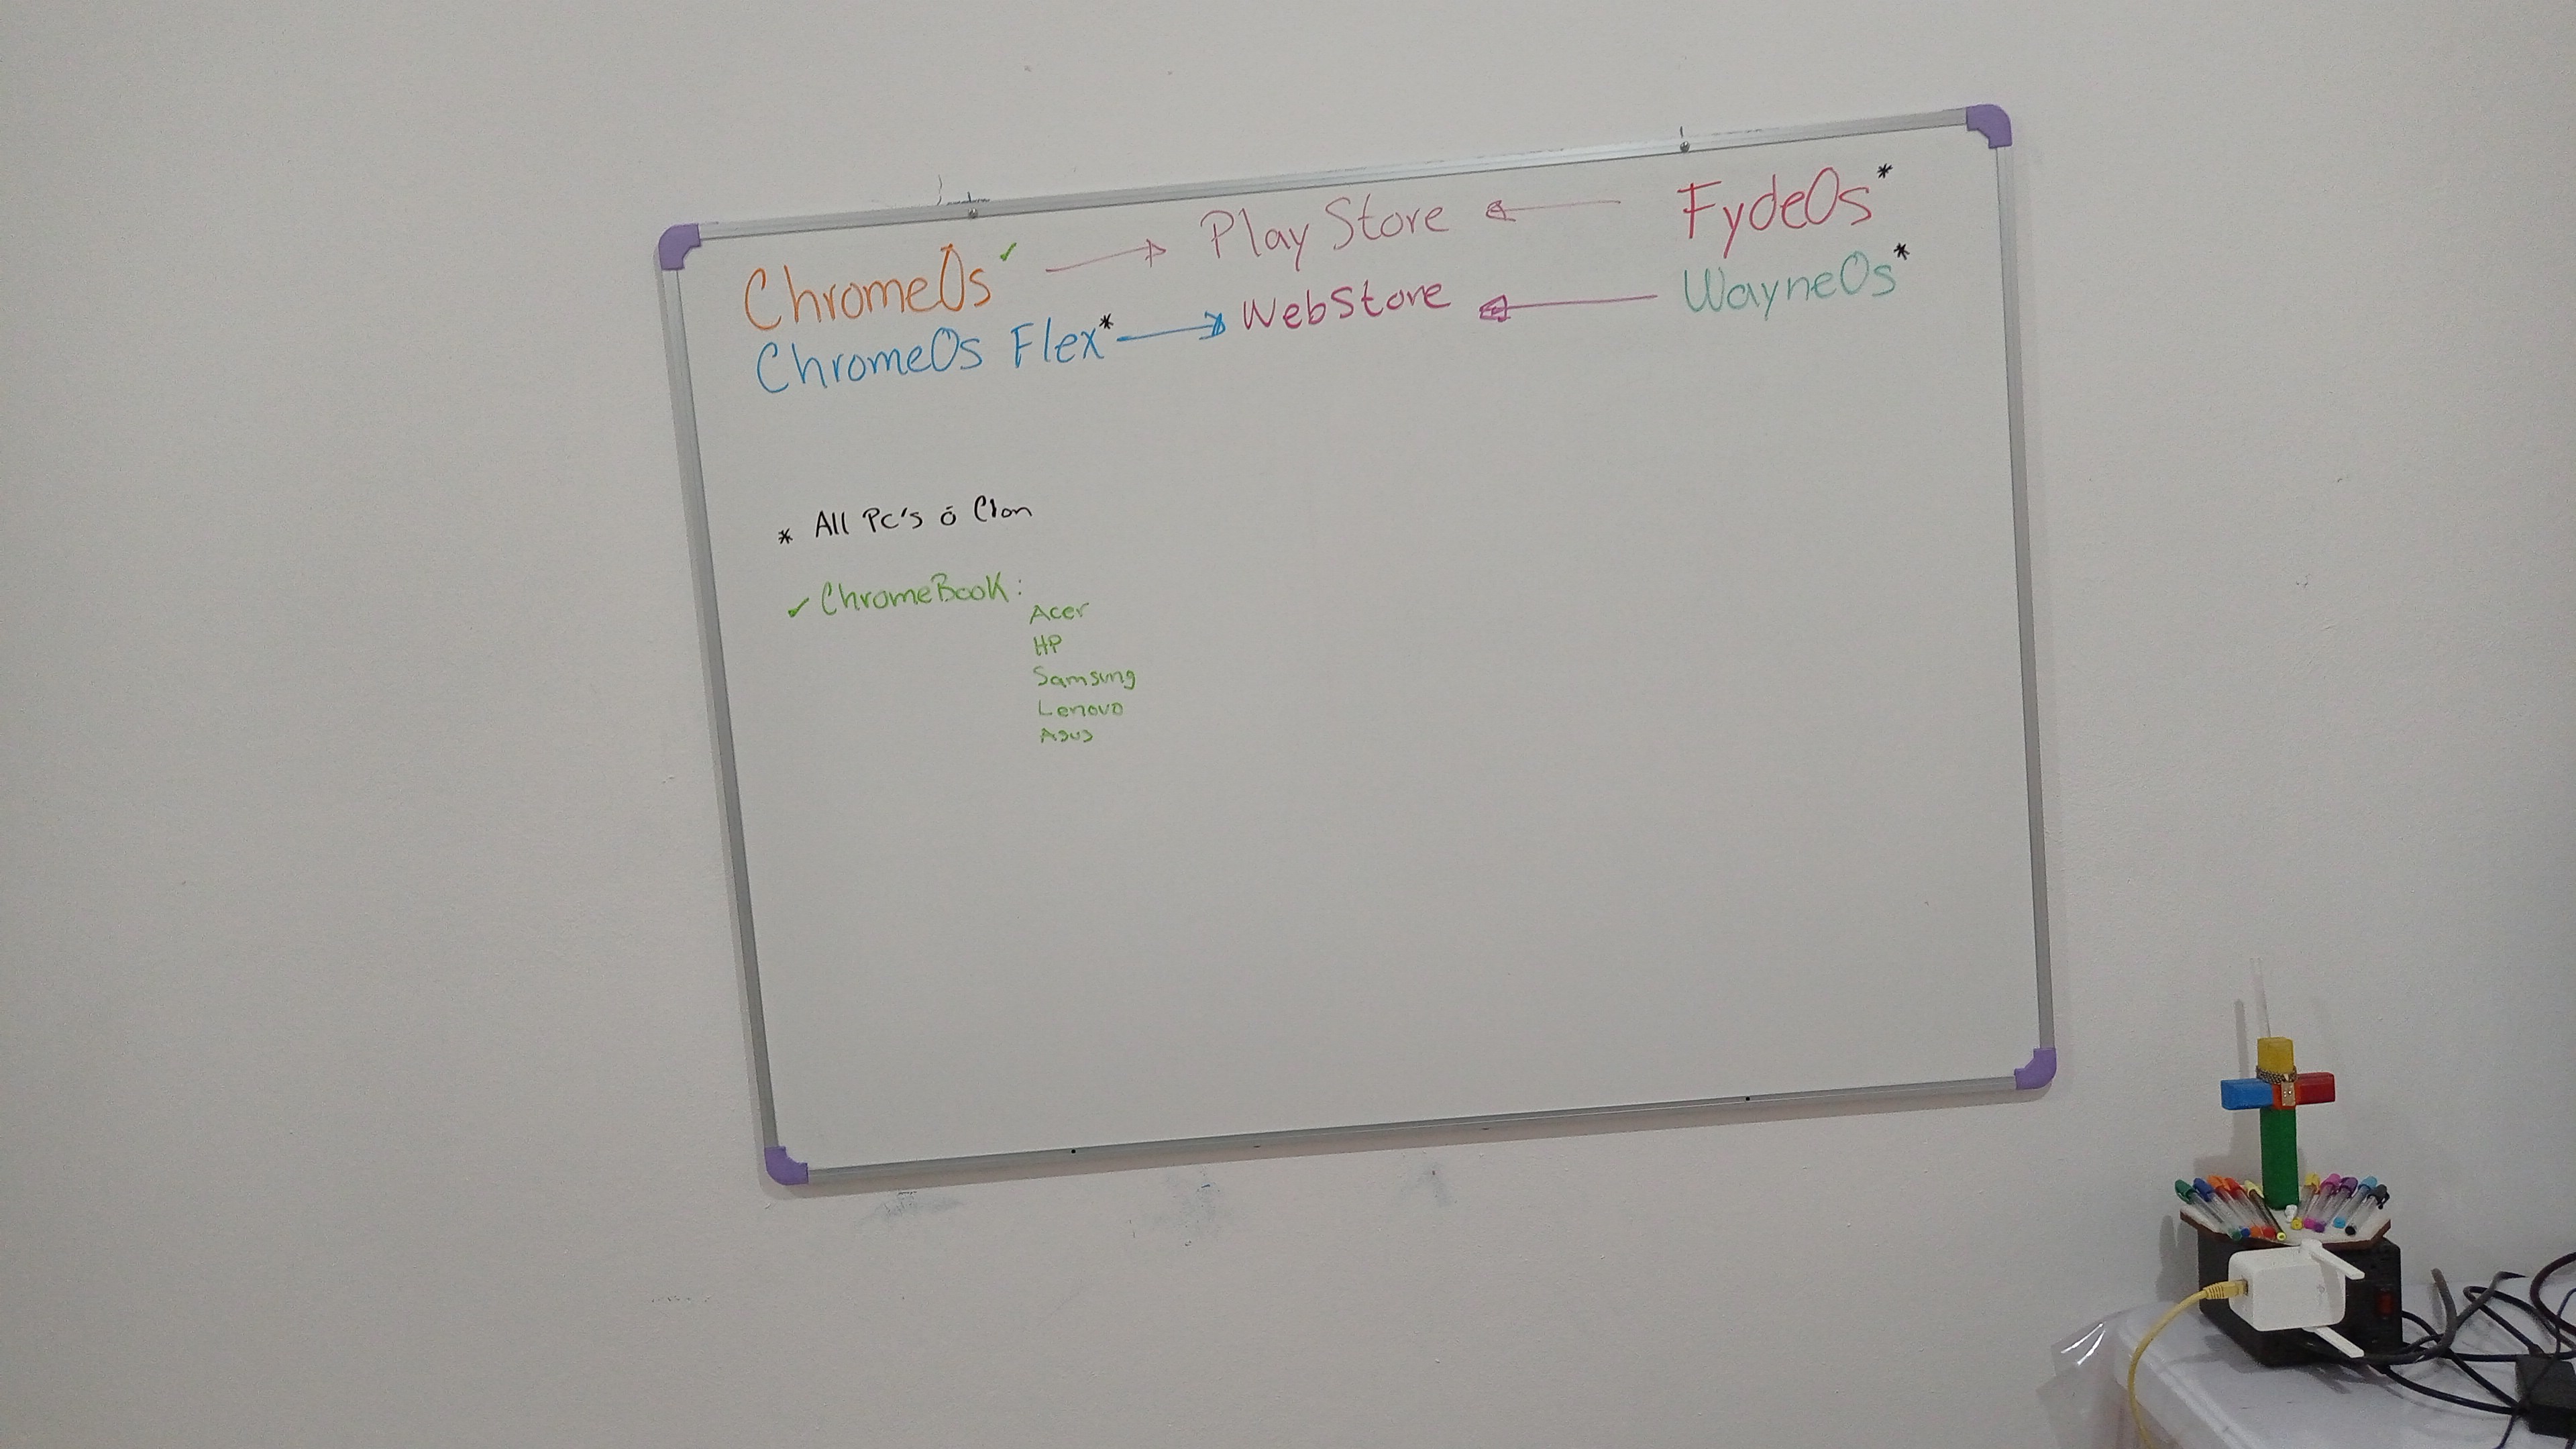 ChromeOs ✓ → Play Store ← FydeOs *
ChromeOs Flex * → WebStore ← WayneOs *
* All Pc's ó Clon
✓ ChromeBook:
Acer
HP
Samsung
Lenovo
Asus